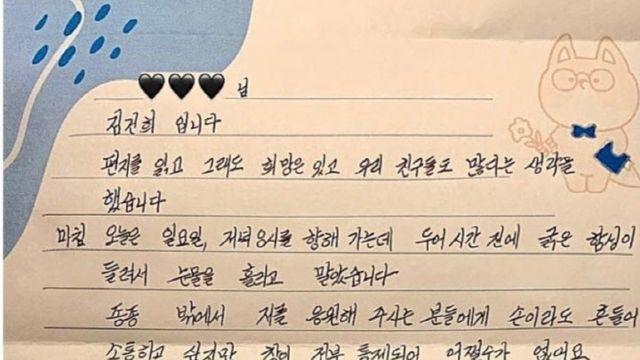 🖤🖤🖤 님
김건희 입니다
편지를 읽고 그래도 희망은 있고 우리 친구들도 많다는 생각을
했습니다
마침 오늘은 일요일, 저녁 8시를 향해 가는데 두어 시간 전에 굵은 함성이
들려서 눈물을 흘리고 말았습니다
종종 밖에서 저를 응원해 주시는 분들에게 손이라도 흔들어
소통하고 싶지만 창이 전부 통제되어 어쩔수가 없어요